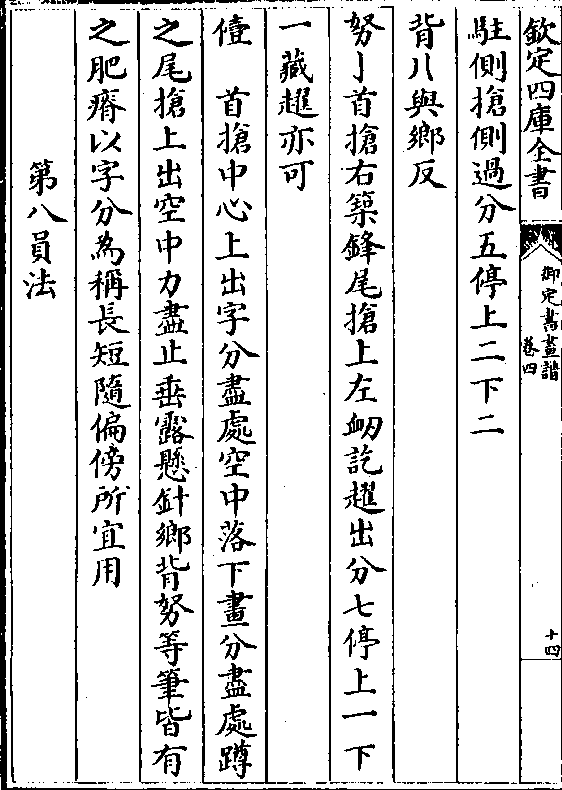 欽定四庫全書
御定書畫譜
卷四
十四
駐側搶側過分五停上二下二
背八與鄉反
努亅首搶右築鋒尾搶上左衂訖趯出分七停上一下
一藏趯亦可
㣫 首搶中心上出字分盡處空中落下畫分盡處蹲
之尾搶上出空中力盡止垂露懸針鄉背努等筆皆有
之肥瘠以字分為稱長短隨偏傍所宜用
第八員法